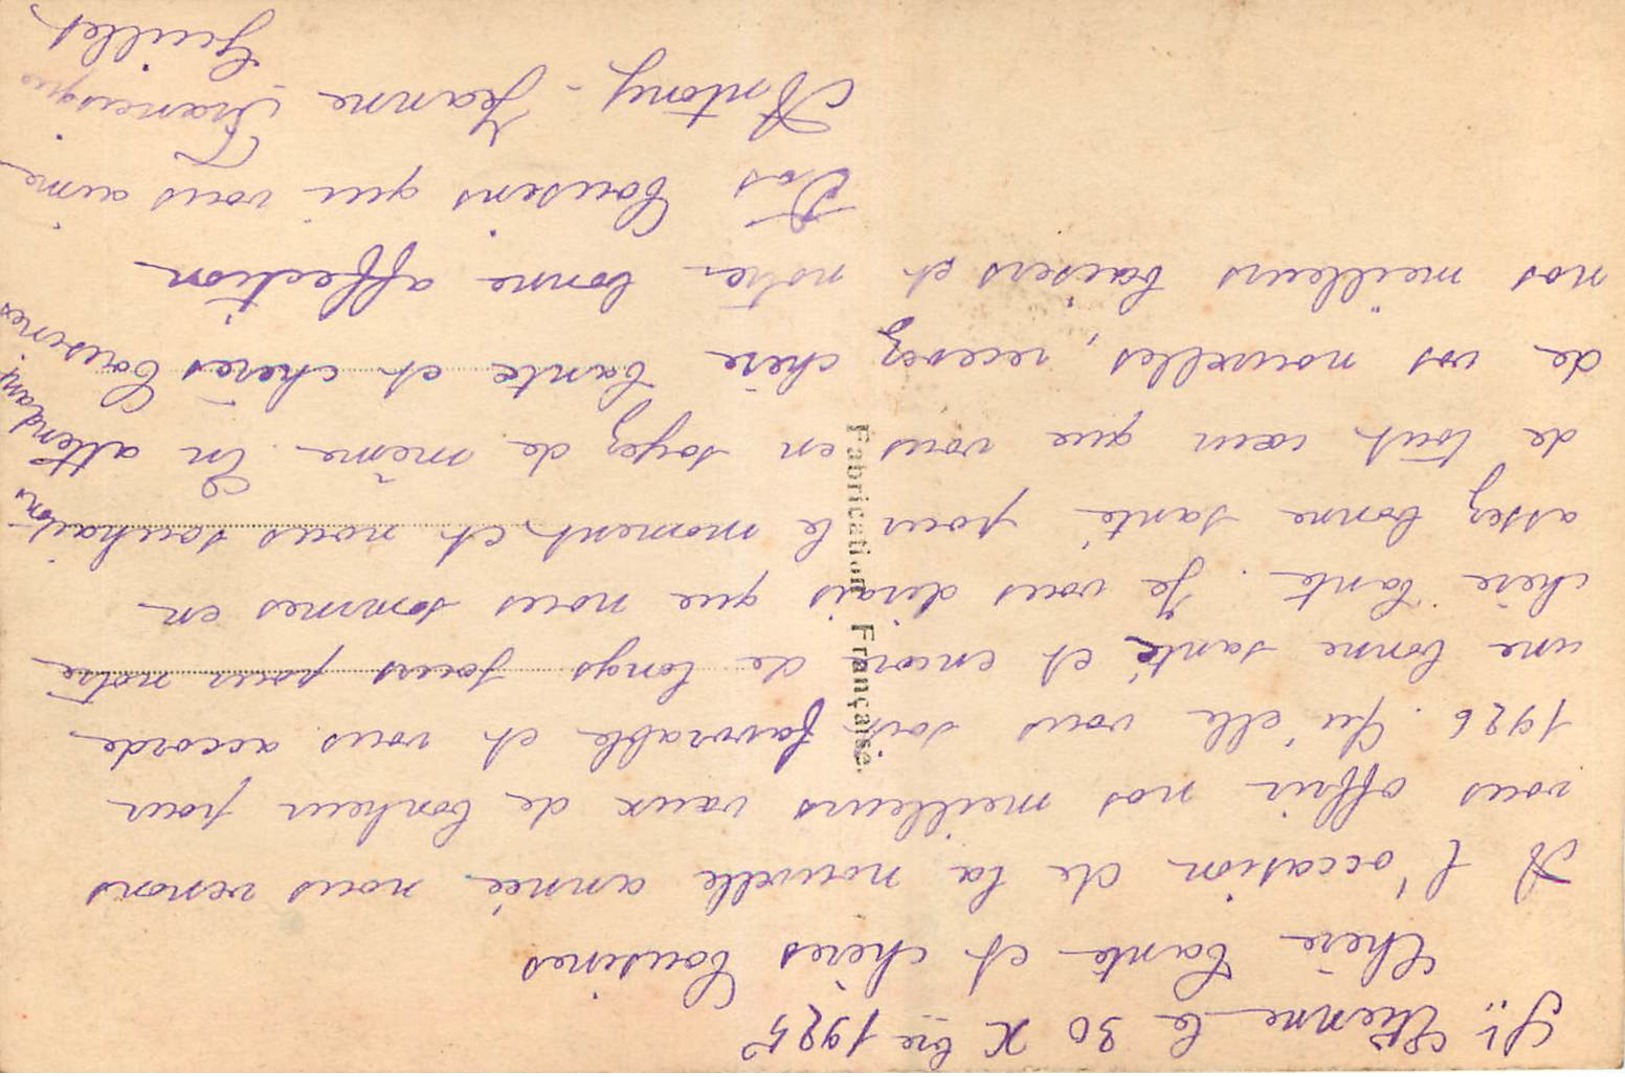 St Etienne le 30 Xbre 1925
Chère Tante et chères Cousines
A l'occasion de la nouvelle année nous venons
vous offrir nos meilleurs vœux de bonheur pour
1926. Qu'elle vous soit favorable et vous accorde
une bonne santé et encore de longs jours pour notre
chère Tante. Je vous dirais que nous sommes en
assez bonne santé pour le moment et nous souhaitons
de tout cœur que vous en soyez de même. En attendant
de vos nouvelles, recevez chère Tante et chères Cousines
nos meilleurs baisers et notre bonne affection
Vos Cousins qui vous aime
Antony - Jeanne - Francisque
Guillet
Fabrication Française.